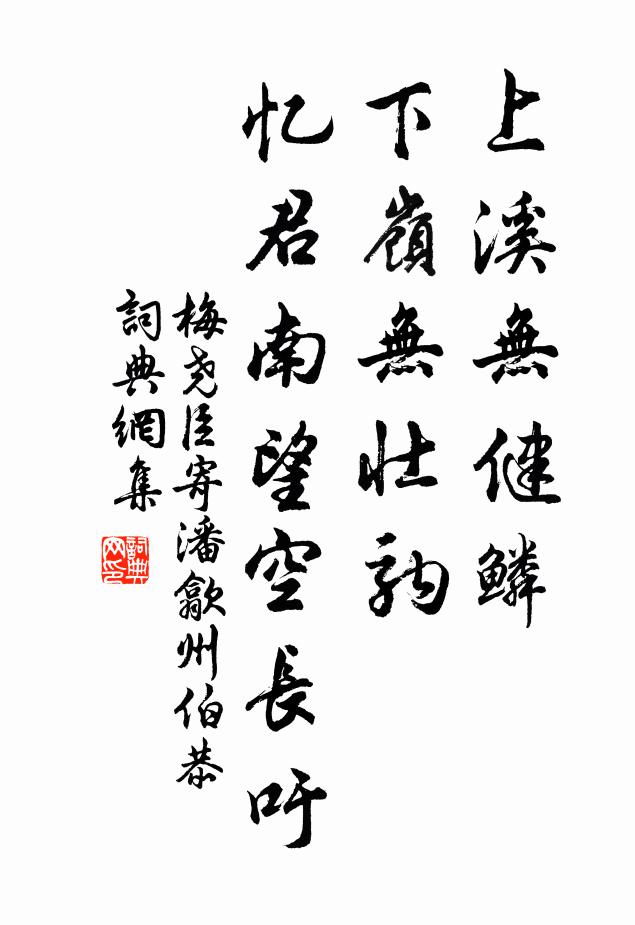 上溪無健鱗
下嶺無壯駒
忆君南望空長吁
梅尧臣寄潘歙州伯恭
詞典網集
詞典
网印